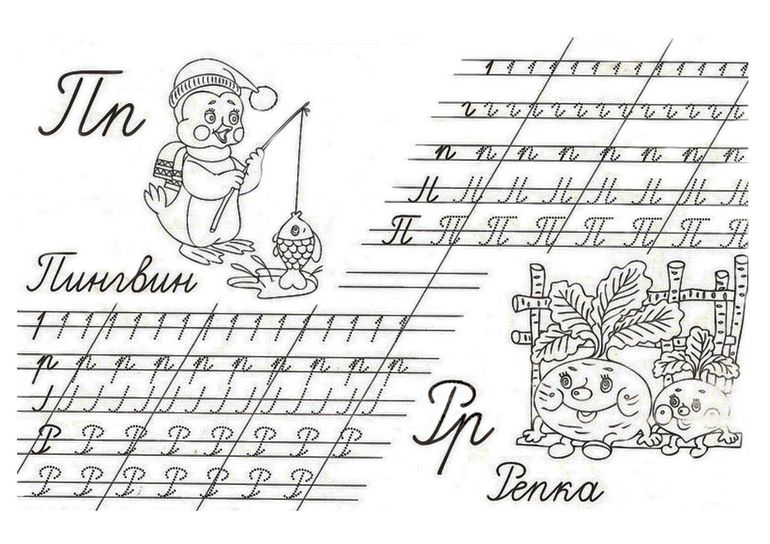 Пп
Пингвин
Рр
Репка